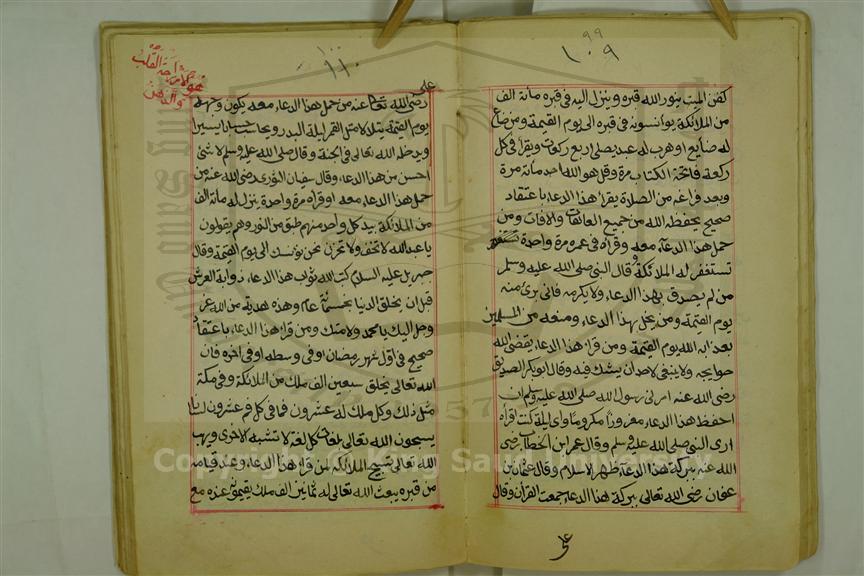 ٩٩
١٠٩
كفن الميت ينور الله قبره وينزل اليه في قبره مائة الف
من الملائكة يوانسونه في قبره الى يوم القيمة ومن ضاع
له ضايع او هرب له عبد يصلى اربع ركعات ويقرأ في كل
ركعة فاتحة الكتاب مرة وقل هو الله احد مائة مرة
وبعد فراغه من الصلاة يقرا هذا الدعاء باعتقاد
صحيح يحفظه الله من جميع العاهات والافات ومن
حمل هذا الدعاء معه وقرأه في عمره مرة واحدة
تستغفر له الملائكة وقال النبي صلى الله عليه وسلم
من لم يصدق بهذا الدعاء ولا يكرمه فانى برئ منه
يوم القيمة ومن يبخل بهذا الدعاء ومنعه من المسلمين
بعد به الله يوم القيمة ومن قرا هذا الدعاء يقضى الله
حوايجه ولا ينبغى لاحد ان يشك فيه وقال ابو بكر الصديق
رضى الله عنه امرنى رسول الله صلى الله عليه وسلم ان
احفظ هذا الدعاء معززا مكروما واى ليلة كنت اقرأه
ارى النبي صلى الله عليه وسلم وقال عمر ابن الخطاب رضى
الله عنه ببركة هذا الدعاء ظهر الاسلام وقال عثمان بن
عفان رضى الله تعالى ببركة هذا الدعاء جمعت القرأن وقال
على
١٠٠
١١٠
على
رضى الله تعالى عنه من حمل هذا الدعاء معه يكون وجهه
يوم القيمة يتلالا مثل القمر ليلة البدر ويحاسب حسابا يسيرا
ويدخله الله تعالى في الجنة وقال صلى الله عليه وسلم لا شئ
احسن من هذا الدعاء وقال سفيان الثورى رضى الله عنه من
حمل هذا الدعاء معه او قرأه مرة واحدة ينزل له مائة الف
من الملائكة بيد كل واحد منهم طبق من النور وهم يقولون
يا عبد الله لا تخف ولا تحزن نحن نؤنسك الى يوم القيمة وقال
جبريل عليه السلام كتب الله ثواب هذا الدعاء زواية العرش
قبل ان يخلق الدنيا بخمسمائة عام وهذه هدية من الله عز
وجل اليك يا محمد ولامتك ومن قرا هذا الدعاء باعتقاد
صحيح في اول شهر رمضان او في وسطه او في اخره فان
الله تعالى يخلق سبعين الف ملك من الملائكة وفي مكة
مثل ذلك وكل ملك له عشرون فما في كل فم عشرون لسانا
يسبحون الله تعالى بلغات كل لغة لا تشبه الاخرى ويهب
الله تعالى تسبيح الملائكة لمن قرا هذا الدعاء وعند قيامه
من قبره يبعث الله تعالى له ثمانين الف ملك يقيمون عنده مع
Copyright © King Saud University
1957